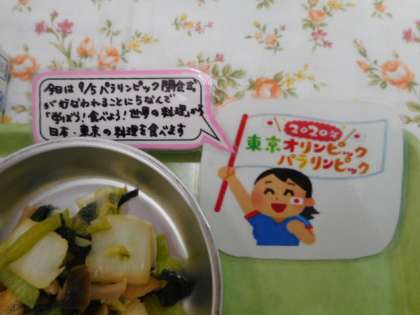 今日は9/5パラリンピック閉会式
がおこなわれることにちなんで
「学ぼう!食べよう!世界の料理」から
日本・東京の料理を食べます
2020年
東京オリンピック
パラリンピック